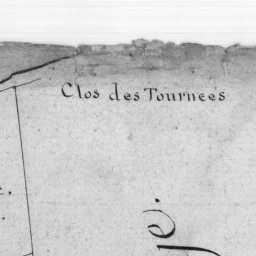 Clos des Tournees